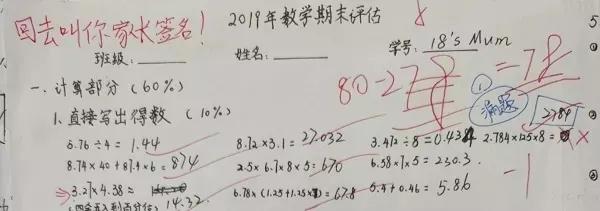 回去叫你家长签名!
2019年数学期末评估
班级: 姓名: 学号: 18's Mum
80-2
=78
一、计算部分 (60%)
满题
1. 直接写出得数 (10%)
2784
5.76÷4= 1.44 8.72×3.1= 27.032 3.472÷8= 0.434 2.784×125×8=
8.74×40+87.4×6= 874 2.5×6.7×8×5= 670 6.58×7×5= 230.3
3.27×4.38≈ 6.78×(1.25+1.25× )= 67.8 5.4+0.46= 5.86
-1
(四舍五入到百分位) 14.32